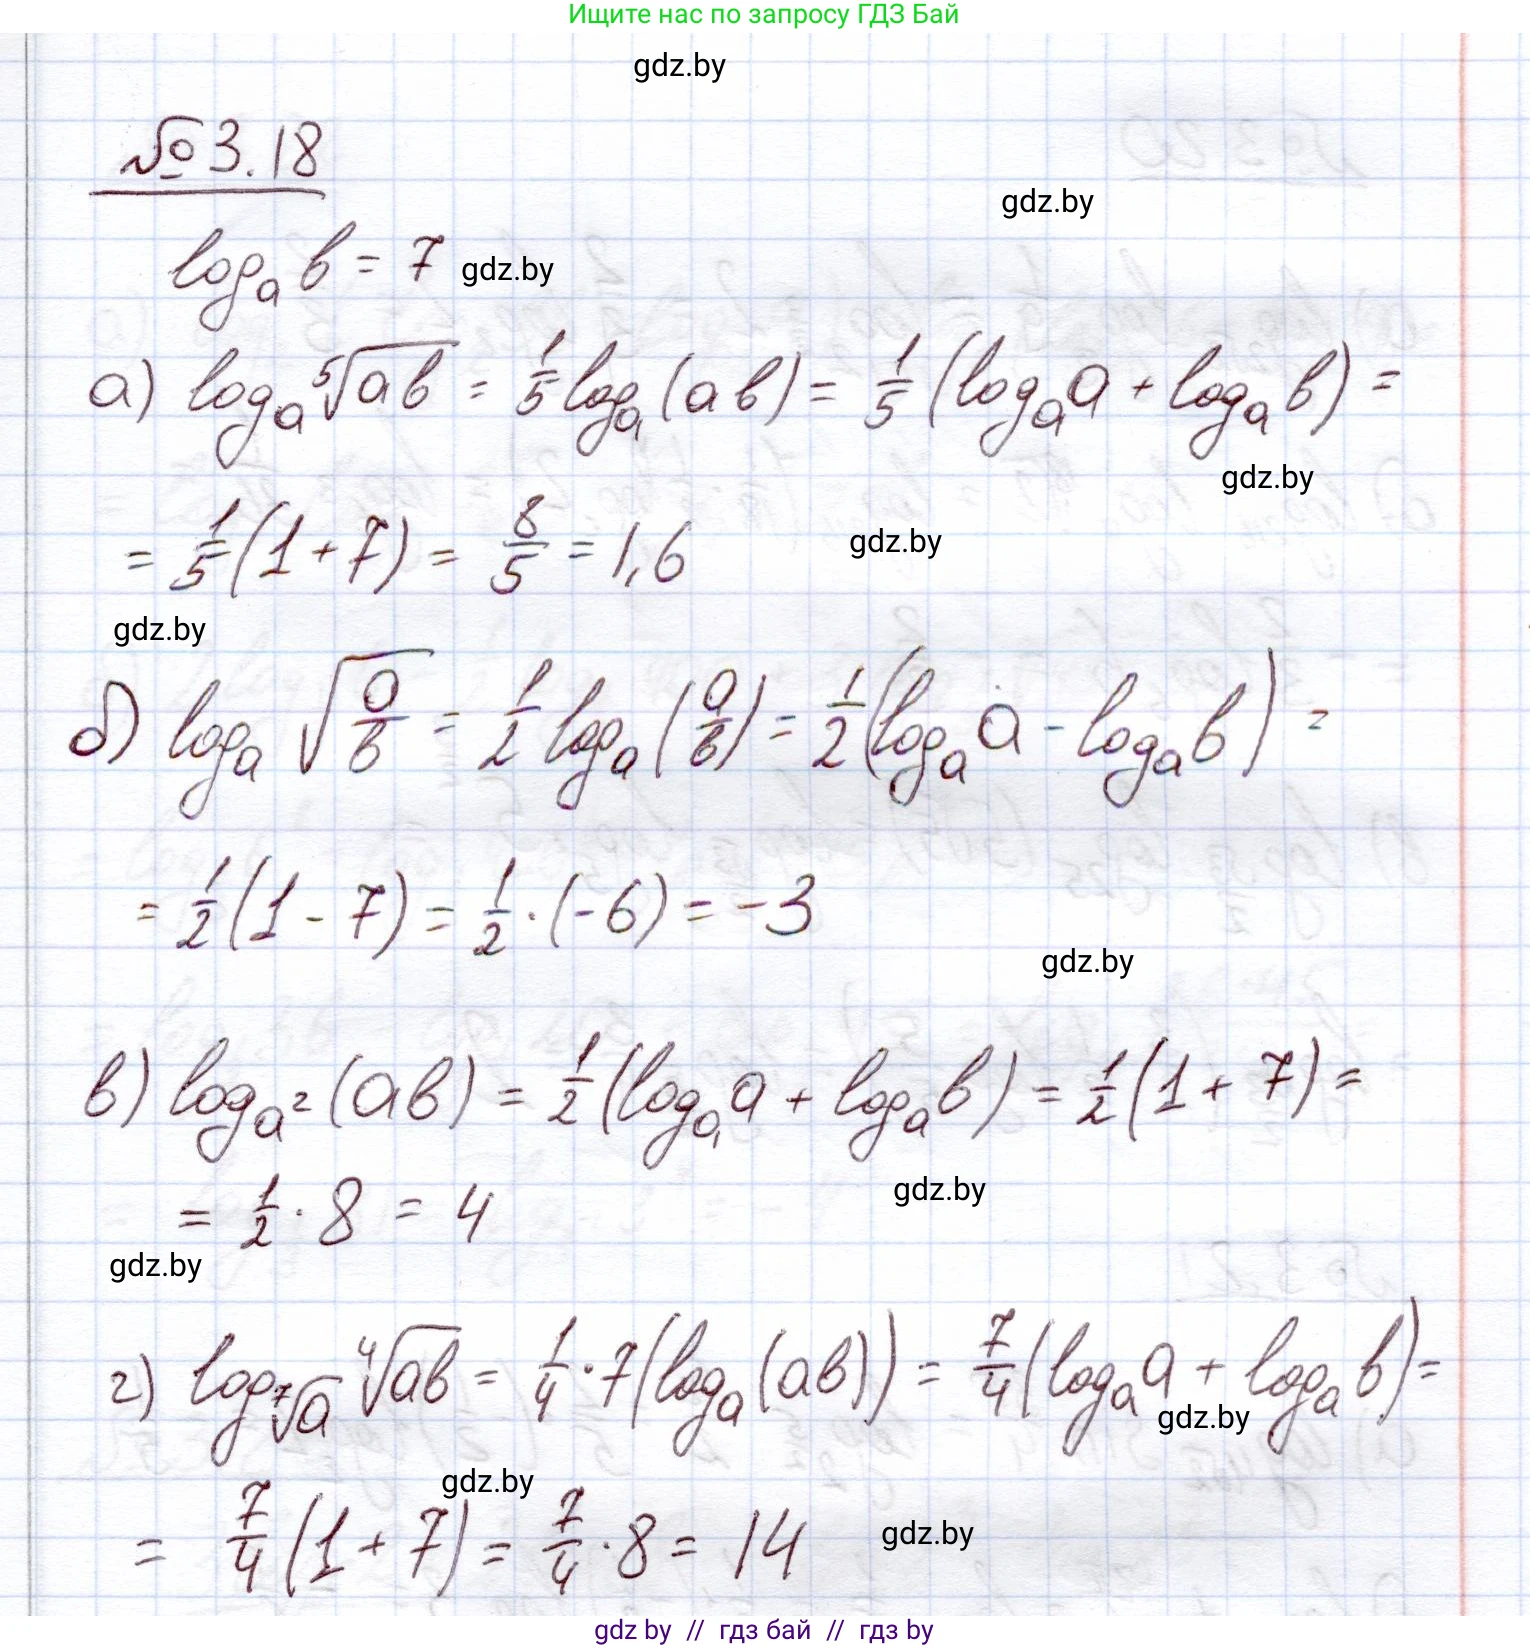 Ищите нас по запросу ГДЗ Бай
gdz.by
№3.18
gdz.by
logₐ b = 7 gdz.by
а) logₐ ⁵√(ab) = 1/5 logₐ (ab) = 1/5 (logₐ a + logₐ b) =
gdz.by
= 1/5 (1 + 7) = 8/5 = 1,6 gdz.by
gdz.by
б) logₐ √(a/b) = 1/2 logₐ (a/b) = 1/2 (logₐ a - logₐ b) =
= 1/2 (1 - 7) = 1/2 · (-6) = -3
gdz.by
в) log_{a²} (ab) = 1/2 (logₐ a + logₐ b) = 1/2 (1 + 7) =
= 1/2 · 8 = 4 gdz.by
gdz.by
г) log_{⁷√a} ⁴√(ab) = 1/4 · 7 (logₐ (ab)) = 7/4 (logₐ a + logₐ b) =
gdz.by
gdz.by
= 7/4 (1 + 7) = 7/4 · 8 = 14 gdz.by
gdz by // гдз бай // гдз by